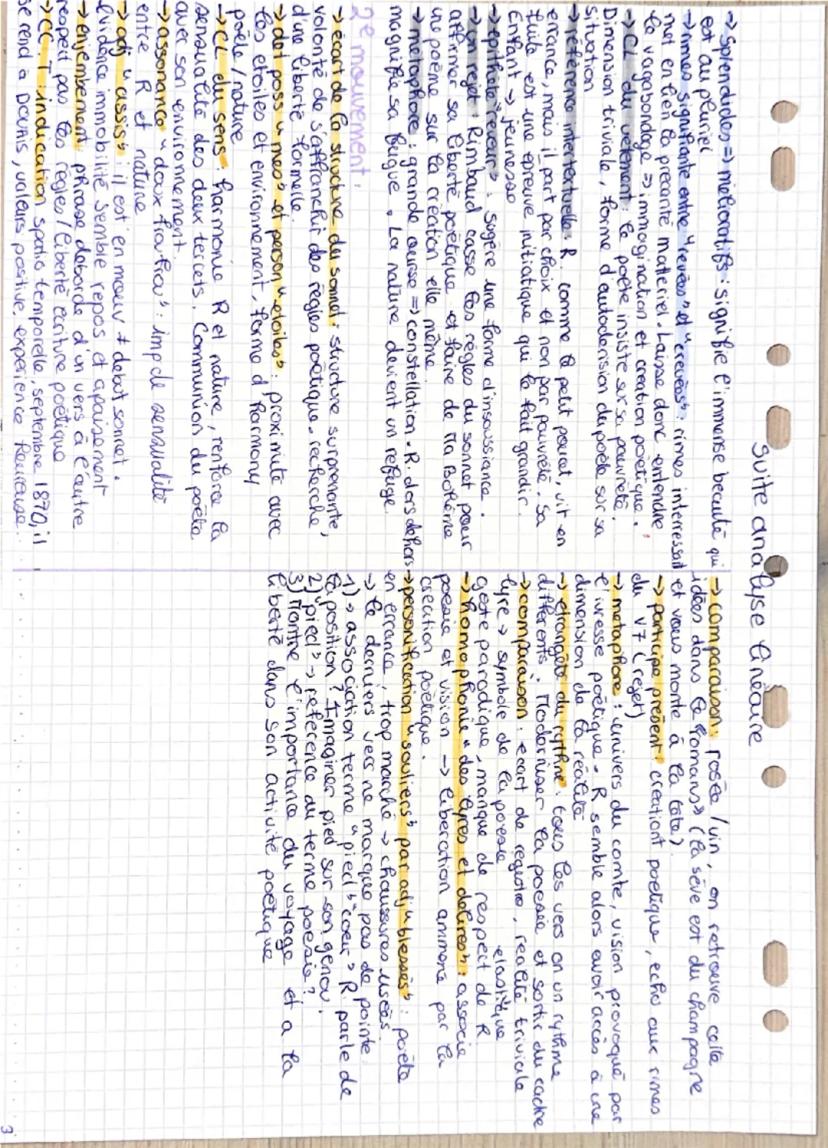 suite analyse linéaire
→ splendides ⇒ mélioratifs : signifie l'immense beauté qui
est au pluriel
→ rimes signifiante entre "rêvées" et "crevées", rimes interressait
met en lien la précarité matteriel. Laisse donc entendre
le vagabondage ⇒ immagination et création poétique.
→ CL du vêtement : le poète insiste sur sa pauvreté.
Dimension triviale, forme d'autoderision du poète sur sa
situation
→ référence intertextuelle R. comme le petit poucet, vit en
errance, mais il part par choix et non par pauvreté. Sa
fuite est une épreuve initiatique qui le fait grandir.
Enfant → jeunesse
→ epithète "rêveur" : sugère une forme d'insoussiance.
→ un rejet : Rimbaud casse les règles du sonnet pour
affirmer sa liberté poétique et faire de Ma Bohème
un poème sur la création elle même.
→ métaphore : grande ourse ⇒ constellation. R. dors dehors
magnifie sa fugue. La nature devient un refuge
2e mouvement :
→ écart de la structure du sonnet : structure surprenante,
volonté de s'affranchir des règles poétique, recherche
d'une liberté formelle
→ det poss "mes" et person "etoiles" : proximité avec
les etoiles et environnement, forme d'harmony
poète/nature
→ CL du sens : harmonie R et nature, renforce la
sensualité des deux tercets. Communion du poète
avec son environnement.
→ assonance "doux froufrou" : imp de sensualité
entre R et nature
→ adj "assis" : il est en mouv ≠ debut sonnet.
Evidence immobilité semble repos et apaisement
→ enjembement : phrase deborde d'un vers à l'autre
respect pas les règles / liberté écriture poétique
→ CC. T : indication spatio temporelle, septembre 1870, il
se rend à , valeurs positive, expérience heureuse.
→ comparaison : rosée / vin, on retrouve cette
idées dans le "Romans" (la sève est du champagne
et vous monte à la tête)
→ participe présent : creationt poétique, echo aux rimes
du v7 (rejet)
→ metaphore : univers du conte, vision provoqué par
l'ivresse poétique. R semble alors avoir accès à une
dimension de la réalité
→ étrangeté du rythme : tous les vers on un rythme
différents. Moderniser la poesie et sortir du cadre
→ comparaison : ecart de registre, realité triviale
lyre → symbole de la poesie elastique
geste parodique, manque de respect de R
→ homophonie "des lyres et délires" : associe
poesie et vision → liberation ammené par la
création poétique.
→ personnification "souliers" par adj "blessés" : poète
en errance, trop marché → chaussures usées
→ le derniers vers ne marque pas de pointe
1) → association terme "pied" "coeur" R. parle de
la position ? Imaginer pied sur son genou.
2) "pied" → reference au terme poesie ?
3) Montre l'importance du voyage et a la
liberté dans son activité poétique
3